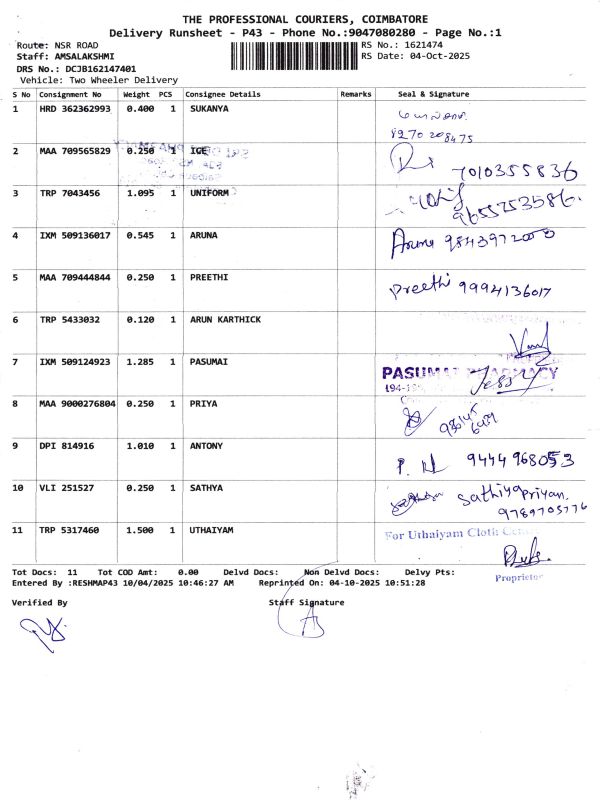 THE PROFESSIONAL COURIERS, COIMBATORE
Delivery Runsheet - P43 - Phone No.:9047080280 - Page No.:1
Route: NSR ROAD RS No.: 1621474
Staff: AMSALAKSHMI RS Date: 04-Oct-2025
DRS No.: DCJB162147401
Vehicle: Two Wheeler Delivery
S No Consignment No Weight PCS Consignee Details Remarks Seal & Signature
1 HRD 362362993 0.400 1 SUKANYA
8270208475
2 MAA 709565829 0.250 1 IGE
7010355836
3 TRP 7043456 1.095 1 UNIFORM
9655253586.
4 IXM 509136017 0.545 1 ARUNA
Aruna
5 MAA 709444844 0.250 1 PREETHI
Preethi 9994136017
6 TRP 5433032 0.120 1 ARUN KARTHICK
7 IXM 509124923 1.285 1 PASUMAI
PASUMAI PHARMACY
8 MAA 9000276804 0.250 1 PRIYA
9 DPI 814916 1.010 1 ANTONY
9444968053
10 VLI 251527 0.250 1 SATHYA
Sathiyapriyan.
9789705776
11 TRP 5317460 1.500 1 UTHAIYAM
For Uthaiyam Cloth
Proprietor
Tot Docs: 11 Tot COD Amt: 0.00 Delvd Docs: Non Delvd Docs: Delvy Pts:
Entered By :RESHMAP43 10/04/2025 10:46:27 AM Reprinted On: 04-10-2025 10:51:28
Verified By Staff Signature